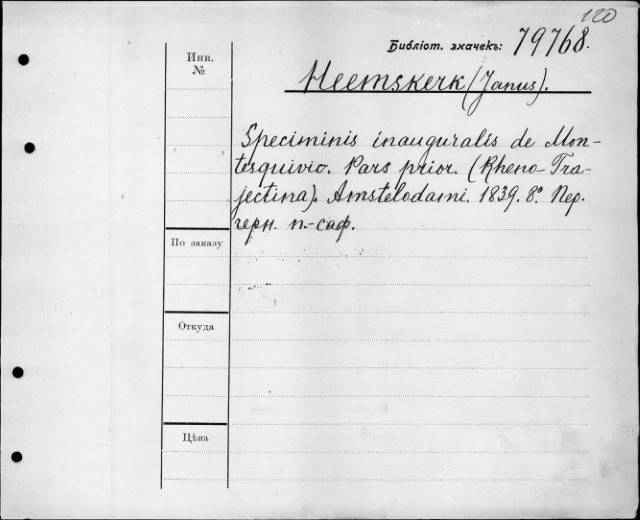 120
Библіот. значекъ: 79768.
Инв.
№
Heemskerk (Janus).
Speciminis inauguralis de Mon-
tesquivio. Pars prior. (Rheno-Tra-
jectina). Amstelodami. 1839. 8° Пер.
черн. п.-саф.
По заказу
Откуда
Цѣна